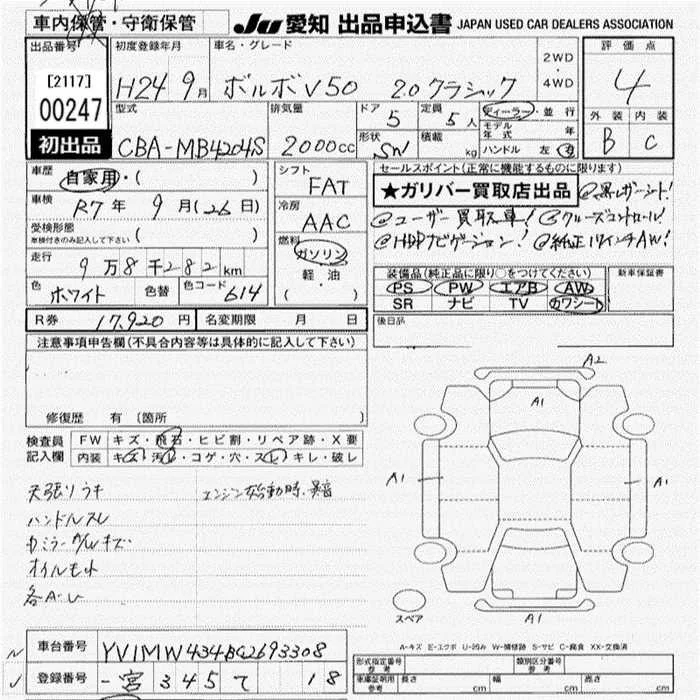 車内保管・守衛保管
JU 愛知 出品申込書 JAPAN USED CAR DEALERS ASSOCIATION
出品番号 初度登録年月 車名・グレード 2WD・4WD 評価点
[2117]
00247
初出品
H24 9月 ボルボV50 2.0クラシック 4
型式 排気量 ドア 5 定員 5人 ディーラー・並行 外装 内装
モデル年式 年
CBA-MB4204S 2000cc 形状 SW 積載 kg ハンドル 左 右 B C
車歴 自家用・( )
シフト FAT
セールスポイント(正常に機能するものに限ります)
★ガリバー買取店出品 @黒レザーシート!
車検 R7年 9月(26日)
冷房 AAC
@ユーザー買取車! @クルーズコントロール!
受検形態 車検付きのみ記入して下さい ( )
燃料 ガソリン 軽・油 ( )
@HDDナビゲーション! @純正17インチAW!
走行 9万8千282km
装備品(純正品に限り○をつけてください) 新車保証書
色 ホワイト 色替 色コード 614
PS PW エアB AW
SR ナビ TV カワシート
R券 17,920円 名変期限 月 日
後日品
注意事項申告欄(不具合内容等は具体的に記入して下さい)
修復歴 有 (箇所 )
検査員記入欄 FW キズ・飛石・ヒビ割・リペア跡・X要
内装 キズ・汚レ・コゲ・穴・スレ・キレ・破レ
天張りウキ エンジン始動時、異音
ハンドルスレ
カミラーウィンカキズ
オイルモレ
各A・U
A2
A1
A1
A1
A1
スペア
A-キズ E-エクボ U-凹み W-補修跡 S-サビ C-腐食 XX-交換済
車台番号 YV1MW434BC2693308
登録番号 一宮 345 て 18
形式指定番号 参考 類別区分番号 参考
車庫証明用 参考 長さ cm 幅 cm 高さ cm